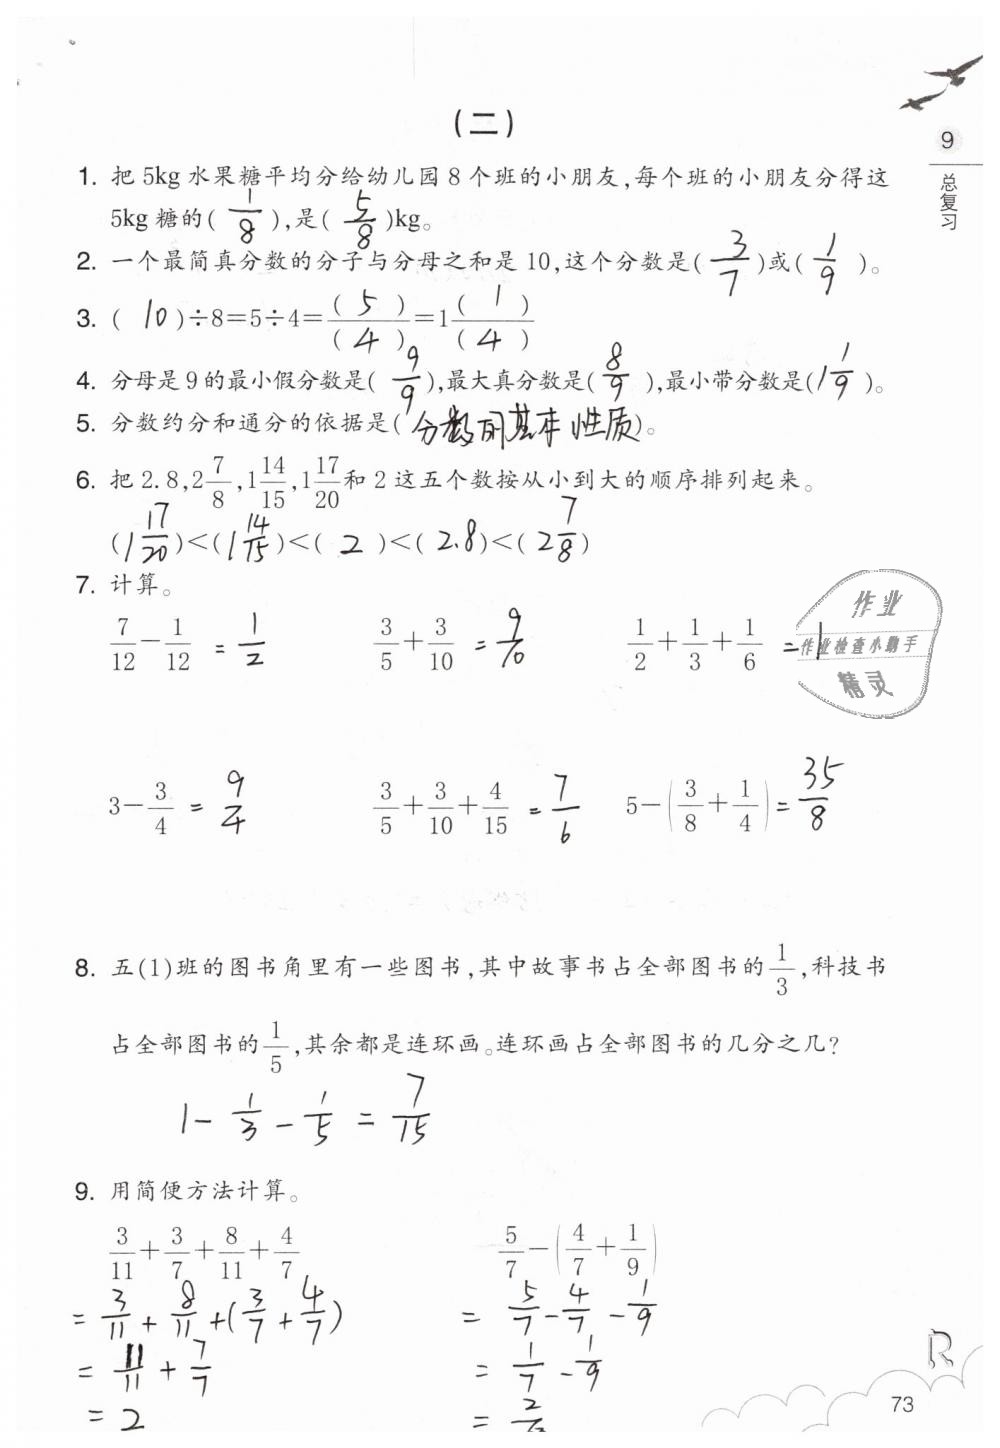 (二)
9
总复习
1. 把 5kg 水果糖平均分给幼儿园 8 个班的小朋友,每个班的小朋友分得这
5kg 糖的( 1/8 ),是( 5/8 )kg。
2. 一个最简真分数的分子与分母之和是 10,这个分数是( 3/7 )或( 1/9 )。
3. ( 10 )÷8=5÷4=( 5 )/( 4 )=1( 1 )/( 4 )
4. 分母是 9 的最小假分数是( 9/9 ),最大真分数是( 8/9 ),最小带分数是(1 1/9 )。
5. 分数约分和通分的依据是( 分数的基本性质)。
6. 把 2.8,2 7/8,1 14/15,1 17/20 和 2 这五个数按从小到大的顺序排列起来。
(1 17/20)<(1 14/15)<( 2 )<( 2.8)<( 2 7/8)
7. 计算。
7/12-1/12 = 1/2 3/5+3/10 = 9/10 1/2+1/3+1/6 =1
作业
作业检查小助手
精灵
3-3/4 = 9/4 3/5+3/10+4/15 = 7/6 5-(3/8+1/4)= 35/8
8. 五(1)班的图书角里有一些图书,其中故事书占全部图书的1/3,科技书
占全部图书的1/5,其余都是连环画。连环画占全部图书的几分之几?
1-1/3-1/5=7/15
9. 用简便方法计算。
3/11+3/7+8/11+4/7 5/7-(4/7+1/9)
=3/11+8/11+(3/7+4/7) =5/7-4/7-1/9
=11/11+7/7 =1/7-1/9
=2 =2/
R
73